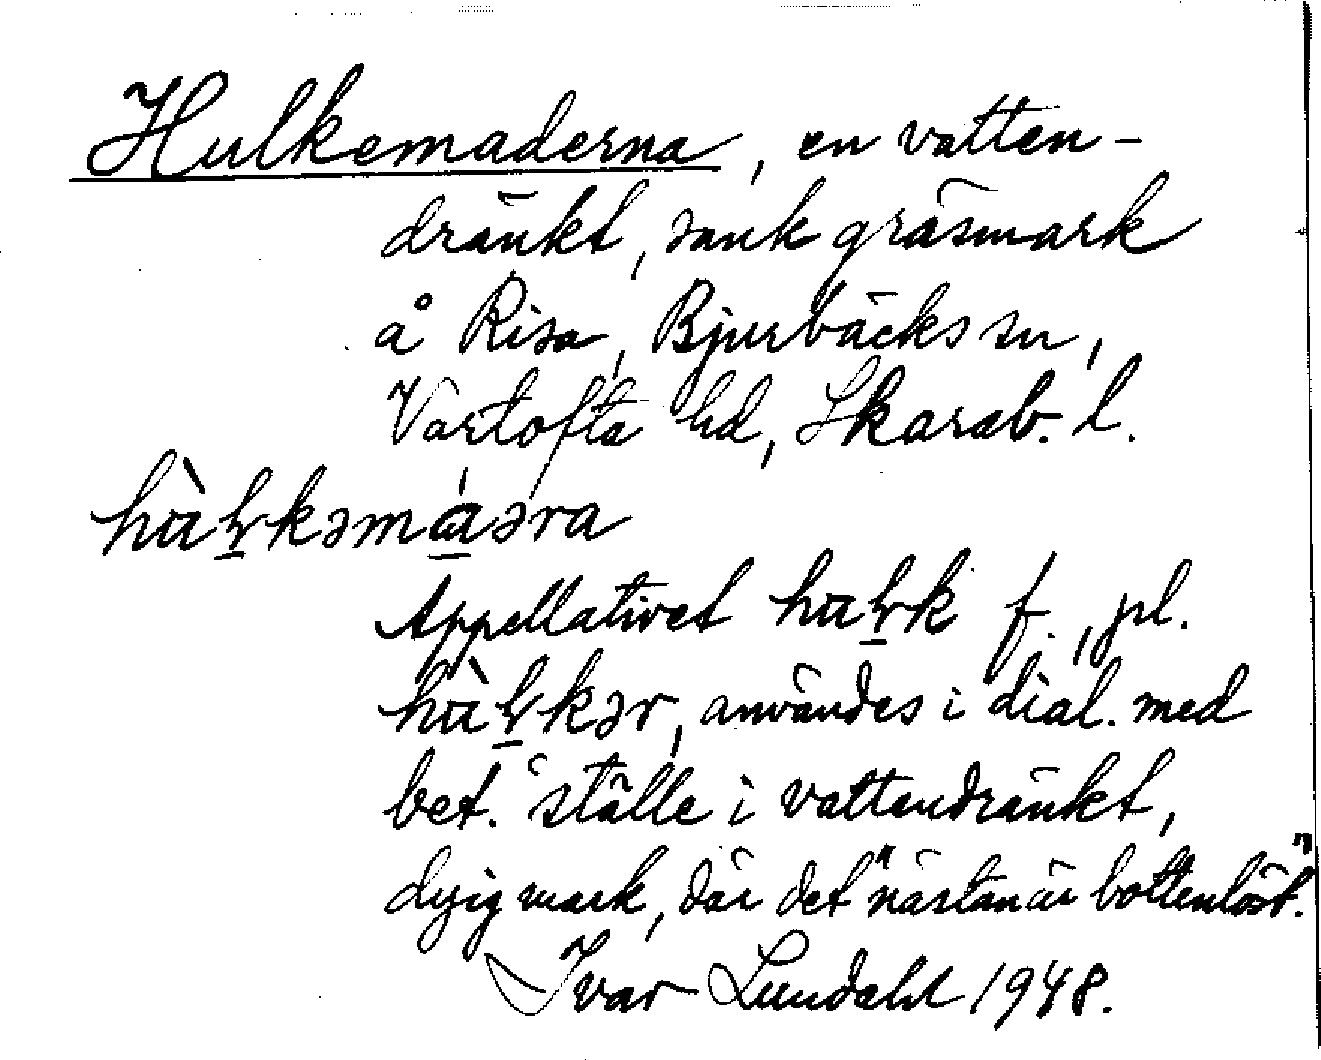 Hulkemaderna, en vatten-
dränkt, sank gräsmark
å Risa, Bjurbäcks sn,
Vartofta hd, Skarab. l.
Appellativet f., pl.
användes i dial. med
bet. ställe i vattendränkt,
dyig mark, där det "nästan är bottenlöst."
Ivar Lundahl 1948.